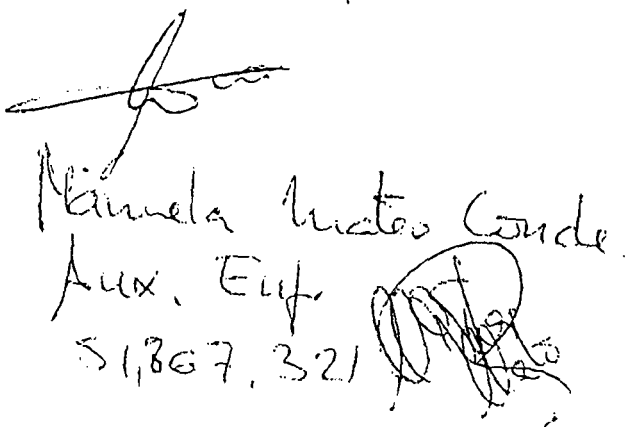 Manuela Mateo Conde.
Aux. Enf.
51,867,321